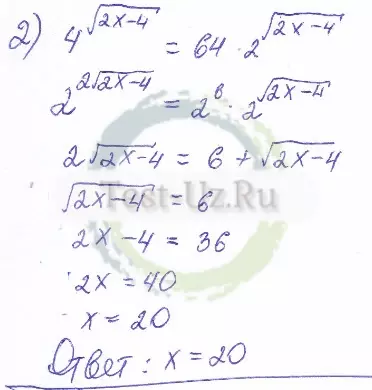 2) 4^√(2x-4) = 64 · 2^√(2x-4)
2^(2√(2x-4)) = 2^6 · 2^√(2x-4)
2√(2x-4) = 6 + √(2x-4)
√(2x-4) = 6
Test-Uz.Ru
2x - 4 = 36
2x = 40
x = 20
Ответ: x = 20